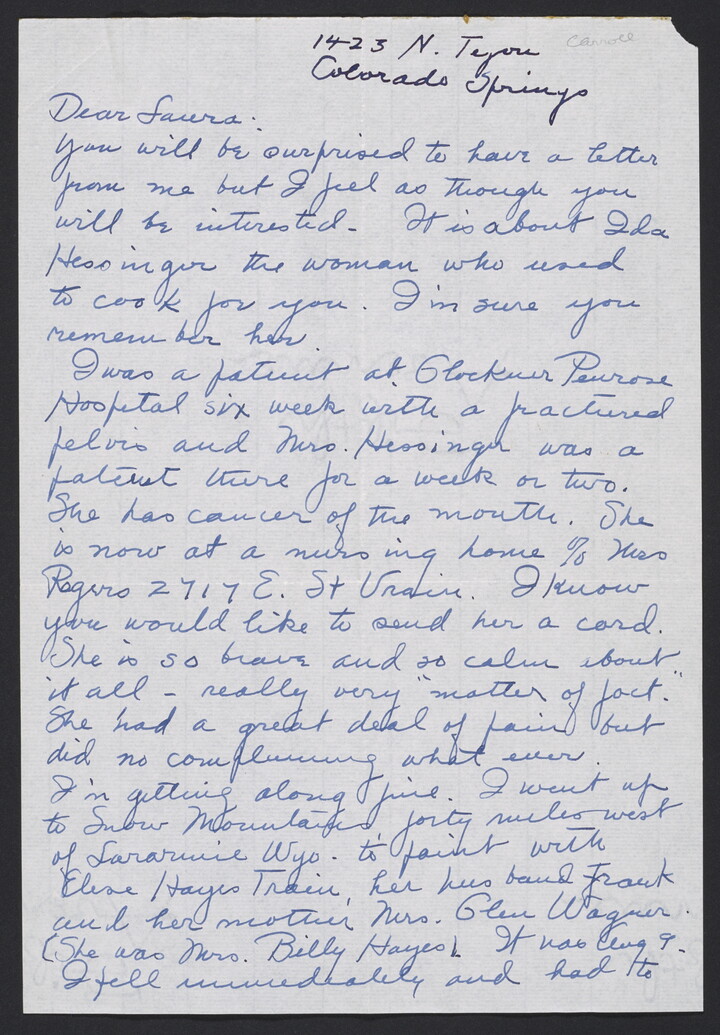 1423 N. Tejon
Carroll
Colorado Springs
Dear Laura:
You will be surprised to have a letter
from me but I feel as though you
will be interested - It is about Ida
Hessinger the woman who used
to cook for you. I'm sure you
remember her.
I was a patient at Glockner Penrose
Hospital six week with a fractured
pelvis and Mrs. Hessinger was a
patient there for a week or two.
She has cancer of the mouth. She
is now at a nursing home % Mrs
Rogers 2717 E. St Vrain. I know
you would like to send her a card.
She is so brave and so calm about
it all - really very "matter of fact."
She had a great deal of pain but
did no complaining what ever.
I'm getting along fine. I went up
to Snow Mountains forty miles west
of Lararmie Wyo. to paint with
Elise Hayes Train, her husband Frank
and her mother, Mrs. Glen Wagner.
(She was Mrs. Billy Hayes). It was Aug 9.
I fell immediately and had to